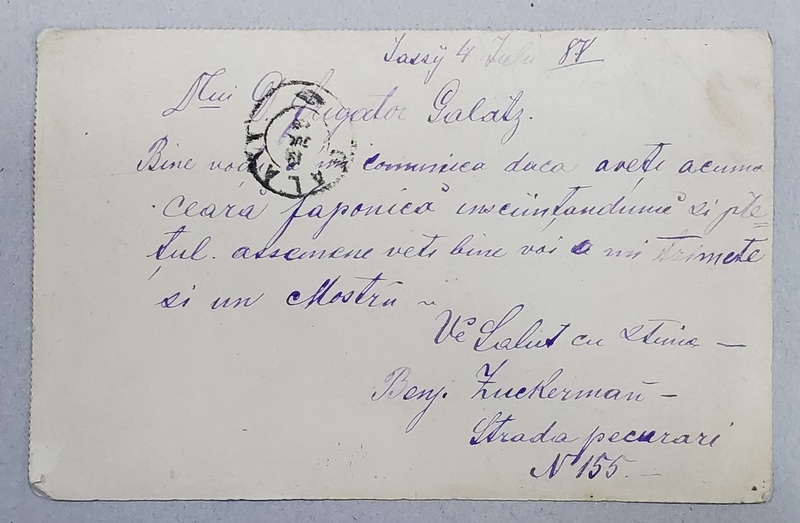 Jassy 4 Iulie 87
Dlui D. Jugator Galatz.
Bine voi mi comunica daca aveti acuma
ceară Japonică insciințandumĕ si pre=
țul. assemene veti bine voi a mi trimete
si un Mostră
Vĕ Salut cu Stima —
Benj. Zuckermañ —
Strada pecurari
N 155. —
GALATI